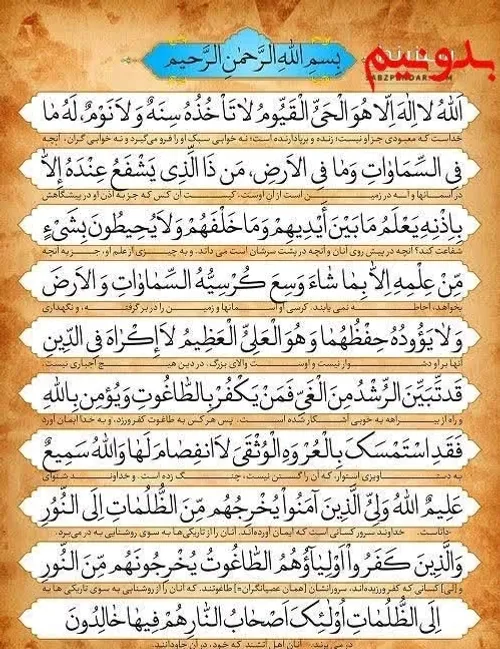 بدونیم
بِسمِ اللهِ الرَّحمٰنِ الرَّحیمِ
SABZPENDAR.COM
اَللهُ لا اِلٰهَ اِلّا هُوَ الْحَیُّ الْقَیُّومُ لا تَاْخُذُهُ سِنَةٌ وَ لا نَوْمٌ، لَهُ ما
خداست که معبودی جز او نیست؛ زنده و برپادارنده است؛ نه خوابی سبک او را فرو می‌گیرد و نه خوابی گران، آنچه
فِی السَّماواتِ وَ ما فِی الاَرضِ، مَن ذَا الَّذی یَشْفَعُ عِنْدَهُ اِلّا
در آسمانها و آنچه در زمین است از آن اوست. کیست آن کس که جز به اذن او در پیشگاهش
بِاِذْنِهِ یَعْلَمُ ما بَیْنَ اَیْدِیهِمْ وَ ما خَلْفَهُمْ وَ لا یُحیطُونَ بِشَیْءٍ
شفاعت کند؟ آنچه در پیش روی آنان و آنچه در پشت سرشان است می داند. و به چیزی از علم او، جز به آنچه
مِّنْ عِلْمِهِ اِلّا بِما شٰاءَ وَسِعَ کُرْسِیُّهُ السَّماواتِ وَ الاَرضَ
بخواهد، احاطه نمی یابند. کرسی او آسمانها و زمین را در بر گرفته، و نگهداری
وَ لا یَؤُودُهُ حِفْظُهُما وَ هُوَ الْعَلِیُّ الْعَظیمُ لا اِکْراهَ فِی الدِّینِ
آنها بر او دشوار نیست و اوست والای بزرگ. در دین هیچ اجباری نیست.
قَد تَّبَیَّنَ الرُّشْدُ مِنَ الْغَیِّ فَمَنْ یَکْفُرْ بِالطّاغُوتِ وَ یُؤْمِن بِاللهِ
و راه از بیراهه به خوبی آشکار شده است. پس هر کس به طاغوت کفر ورزد، و به خدا ایمان آورد
فَقَدِ اسْتَمْسَکَ بِالْعُرْوَهِ الْوُثْقیَ لَا انفِصامَ لَها وَ اللهُ سَمیعٌ
به دستاویزی استوار، که آن را گسستن نیست، چنگ زده است. و خداوند شنوای
عَلیمٌ اللهُ وَلِیُّ الَّذینَ آمَنُواْ یُخْرِجُهُم مِّنَ الظُّلُماتِ اِلَی النُّورِ
داناست. خداوند سرور کسانی است که ایمان آورده‌اند. آنان را از تاریکی‌ها به سوی روشنایی به در می‌برد.
وَالَّذینَ کَفَرُواْ اَوْلِیآؤُهُمُ الطّاغُوتُ یُخْرِجُونَهُم مِّنَ النُّورِ
و[لی] کسانی که کفر ورزیده‌اند، سرورانشان [همان عصیانگران=] طاغوتند، که آنان را از روشنایی به سوی تاریکی ها به
اِلَی الظُّلُماتِ اُوْلٰئِکَ اَصْحابُ النّارِ هُمْ فیها خالِدُونَ
در می برند. آنان اهل آتشند که خود، در آن جاودانند.